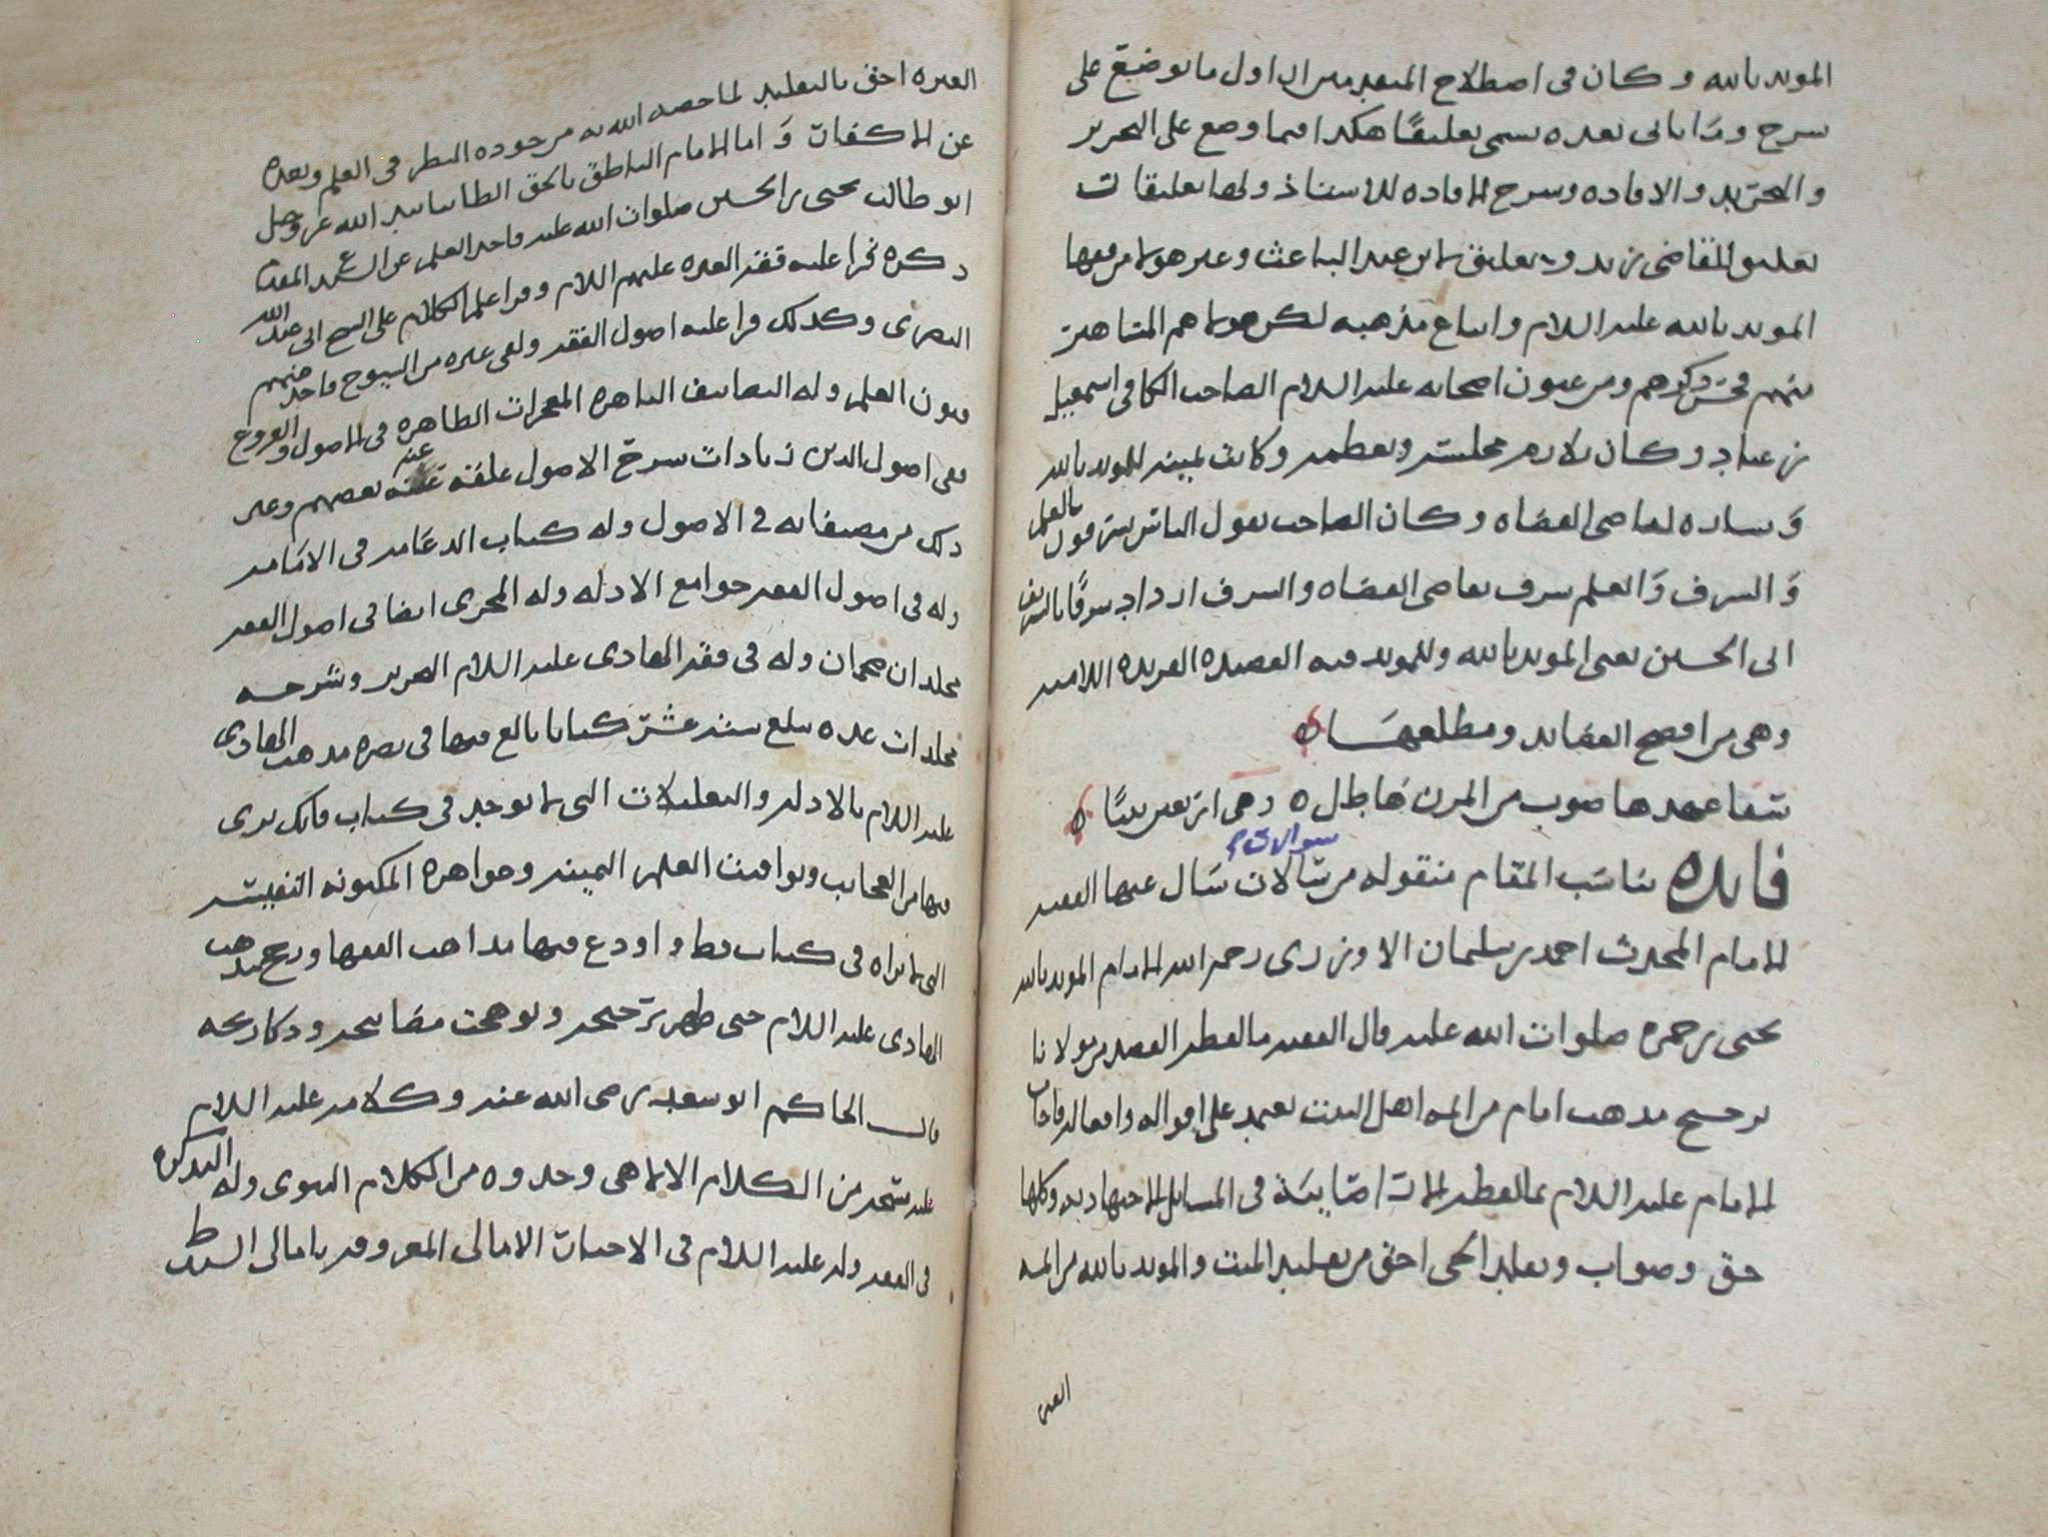 المويد بالله وكان في اصطلاح المتقدمين ان اول ما يوضع على
شرح وما ياتي بعده يسمى تعليقا هكذا فيما وضع على التحرير
والتجريد والافاده وشرح الافاده للاستاذ ولها تعليقات
تعليق القاضي زيد وتعليق ابن عبد الباعث وغير هولا من فقها
المويد بالله عليه السلام واتباع مذهبه لكن هولا هم المشاهير
منهم فحسن ذكرهم ومن عيون اصحابه عليه السلام الصاحب الكافي اسمعيل
بن عباد وكان يلازم مجلسه ويعظمه وكانت يمينه للمويد بالله
ويساره لقاضي القضاه وكان الصاحب يقول الناس يتشرفون بالعلم
والشرف والعلم شرف بقاضي القضاه والشرف ازداد شرفا بالشريف
ابي الحسين يعني المويد بالله وللمويد فيه القصيده الفريده اللاميه
وهي من افصح القصايد ومطلعها
سقا عهدها صوب من المزن هاطل وهي اربعين بيتا
فايده تناسب المقام منقوله من سؤالات سال عنها الفقيه
سوالات
الامام المحدث احمد بن سليمان الاوزري رحمه الله الامام المويد بالله
يحيى بن حمزه صلوات الله عليه قال الفقيه ما لفظه القصد من مولانا
ترجيح مذهب امام من ايمه اهل البيت يعتمد على اقواله وافعاله فاجاب
الامام عليه السلام بما لفظه الارا صايبة في المسايل الاجتهاديه وكلها
حق وصواب وتقليد الحي احق من تقليد الميت والمويد بالله من ايمه
العتره
العتره احق بالتقليد لما خصه الله به من جوده النظر في العلم وبعده
عن المكفات واما الامام الناطق بالحق الظافر بتاييد الله عز وجل
ابو طالب يحيى بن الحسين صلوات الله عليه فاخذ العلم عن السيد المقدم
ذكره فقرا عليه فقه العتره عليهم السلام وقرا علم الكلام على الشيخ ابي عبد الله
البصري وكذلك قرا عليه اصول الفقه ولقي غيره من الشيوخ فاخذ منهم
فنون العلم وله التصانيف الباهره المعجزات الظاهره في الاصول والفروع
ففي اصول الدين زيادات شرح الاصول علقه عنه بعضهم وغير
ذلك من مصنفاته في الاصول وله كتاب الدعامه في الامامه
وله في اصول الفقه جوامع الادله وله المجزي ايضا في اصول الفقه
مجلدان ضخمان وله في فقه الهادي عليه السلام التحرير وشرحه
مجلدات عده تبلغ ستة عشر كتابا بالغ فيها في نصره مذهب الهادي
عليه السلام بالادله والتعليلات التي لا توجد في كتاب فانك ترى
فيها من العجايب ويواقيت العلم الثمينه وجواهره المكنونه النفيسه
التي لا تراه في كتاب قط واودع فيها مذاهب الفقها ورجح مذهب
الهادي عليه السلام حتى ظهر ترجيحه وتوهجت مصابيحه وذكا ريحه
قال الحاكم ابو سعد رضي الله عنه وكلامه عليه السلام
عليه مسحه من الكلام الالاهي وجذوه من الكلام النبوي وله التذكره
في الفقه وله عليه السلام في الاخبار الامالي المعروفه بامالي السيد ط